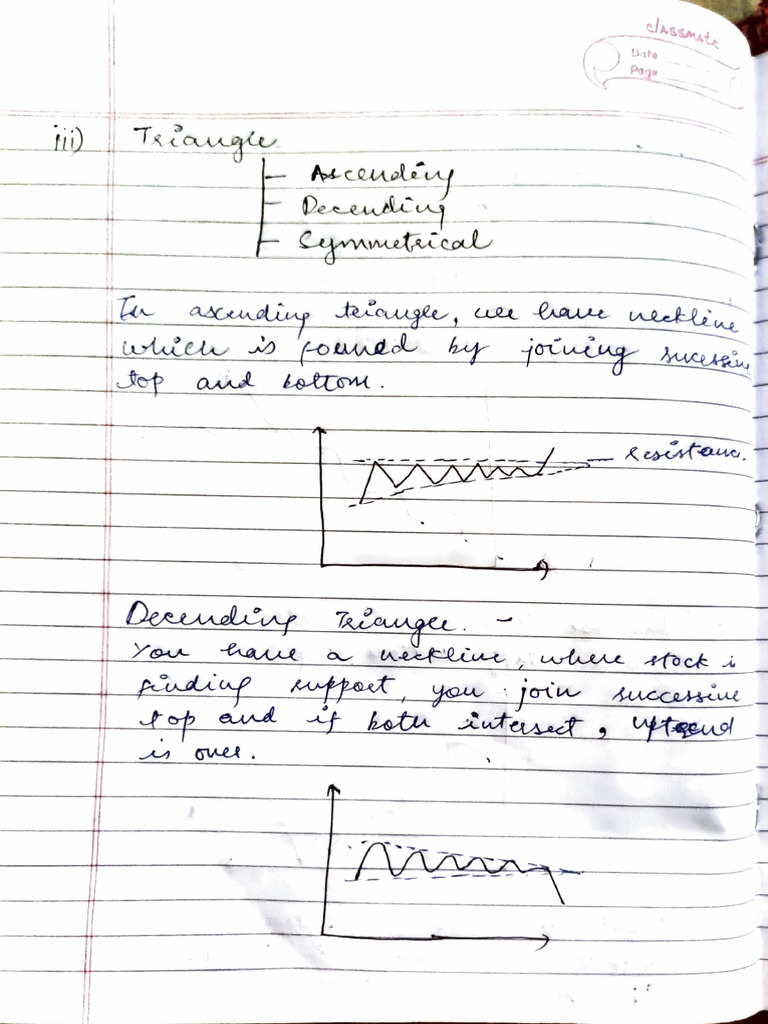 classmate
Date
Page
iii) Triangle
Ascending
Decending
Symmetrical
In ascending triangle, we have neckline
which is founed by joining sucessive
top and bottom.
Resistance.
Decending Triangle. -
You have a neckline, where stock is
finding support, you join successive
top and if both intersect, uptrend
is over.